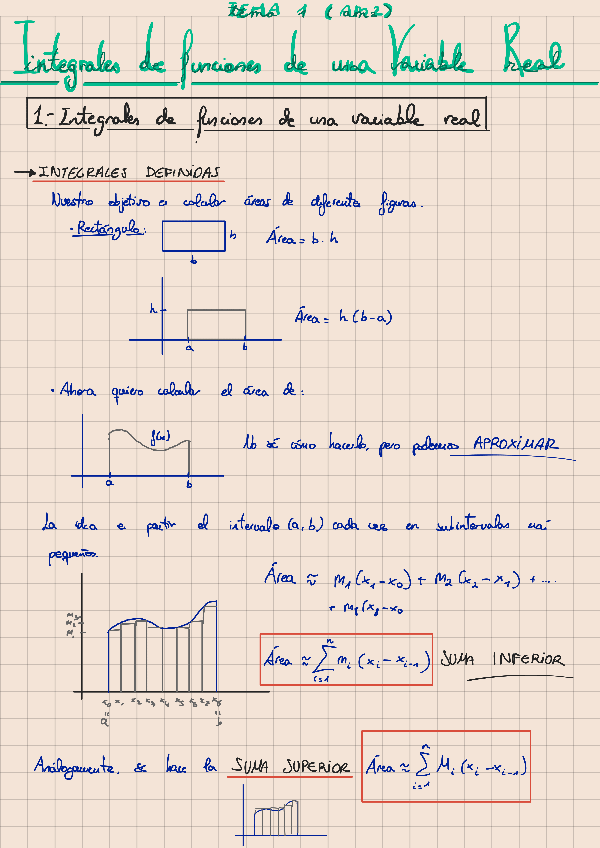 TEMA 1 (AM2)
Integrales de funciones de una Variable Real
1.- Integrales de funciones de una variable real
→ INTEGRALES DEFINIDAS
Nuestro objetivo es calcular áreas de diferentes figuras.
· Rectángulo: h Área = b · h
b
h Área = h (b-a)
a b
· Ahora quiero calcular el área de:
f(x) No sé cómo hacerlo, pero podemos APROXIMAR
a b
La idea es partir el intervalo (a, b) cada vez en subintervalos más
pequeños.
Área ≈ m₁ (x₁-x₀) + m₂ (x₂-x₁) + ...
Área ≈ ∑ⁿᵢ₌₁ mᵢ (xᵢ - xᵢ₋₁) SUMA INFERIOR
x₀ x₁ x₂ x₃ x₄ x₅ x₆
a b
Análogamente, se hace la SUMA SUPERIOR Área ≈ ∑ⁿᵢ₌₁ Mᵢ (xᵢ - xᵢ₋₁)